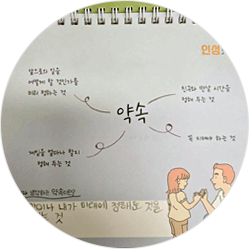 인성
앞으로의 일을
어떻게 할 것인가를
미리 정하는 것
친구와 만날 시간을
정해 두는 것
약속
꼭 지켜야 하는 것
게임을 얼마나 할지
정해 두는 것
생각하는 약속이란
내가 미래에 정해놓은 것을
는 것